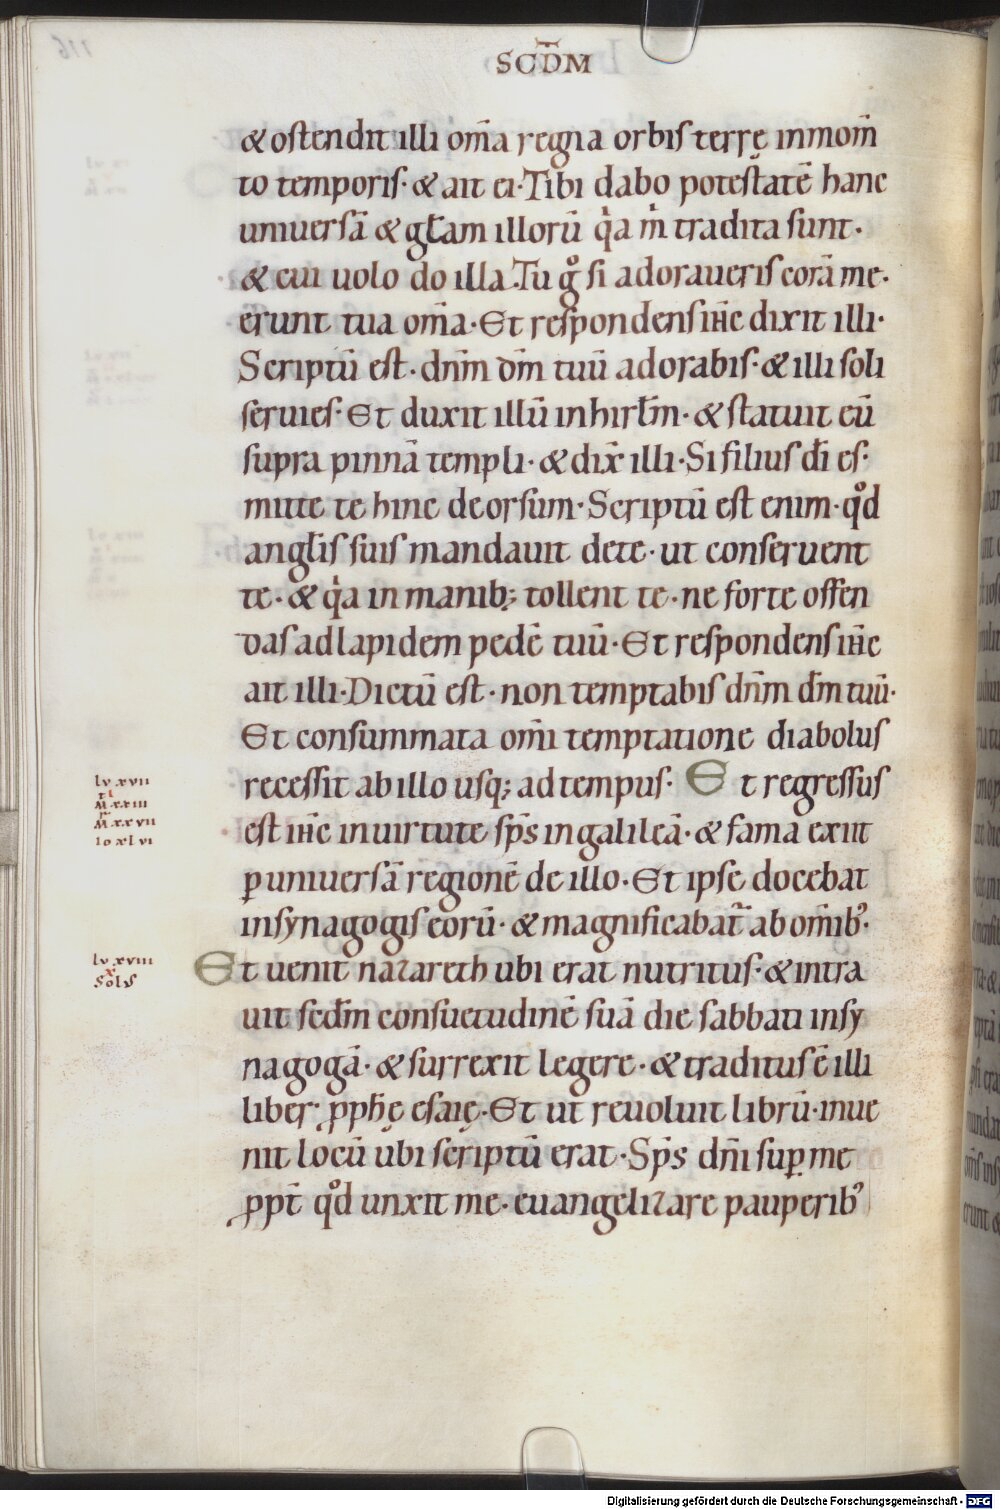 SCD̅M
& oſtendit illi om̅a regna orbiſ terrę in mom̅
to temporiſ· & ait ei· Tibi dabo poteſtatē hanc
uniuerſā & gl̅am illorū qͥa mͥ tradita ſunt·
& cui uolo do illa· Tu gͦ ſi adoraueriſ corā me·
erunt tua om̅a· Et reſpondenſ ih̅c dixit illi·
Scriptū eſt· dn̅m dm̅ tuū adorabiſ· & illi ſoli
ſeruieſ· Et duxit illū in hirl̅m· & ſtatuit eū
ſupra pinnā templi· & dix̅ illi· Si filiuſ di̅ eſ·
mitte te hinc deorſum· Scriptū eſt enim· qͦd
angl̅iſ ſuiſ mandauit de te· ut conſeruent
te· & qͥa in manib; tollent te· ne forte offen
daſ ad lapidem pedē tuū· Et reſpondenſ ih̅c
ait illi· Dictū eſt· non temptabiſ dn̅m dm̅ tuū·
Et conſummata om̅i temptatione diaboluſ
receſſit ab illo uſq; ad tempuſ· Et regreſſuſ
eſt ih̅c in uirtute ſp̅s in galileā· & fama exiit
ꝑ uniuerſā regionē de illo· Et ipſe docebat
in ſynagogiſ eorū· & magnificabat᷑ ab om̅ib᾽·
Et uenit nazareth ubi erat nutrituſ· & intra
uit ſcd̅m conſuetudinē ſuā die ſabbati in ſy
nagogā· & ſurrexit legere· & tradituſ ē illi
liber· ꝓph̅ę eſaię· Et ut reuoluit librū· inue
nit locū ubi ſcriptū erat· Sp̅s dn̅i ſuꝑ me
ꝓpt̅ qͦd unxit me· euangelizare pauperib᾽
lv xvii
M xxiii
M xxvii
Io xlvi
lv xviii
Solſ
Digitalisierung gefördert durch die Deutsche Forschungsgemeinschaft - DFG